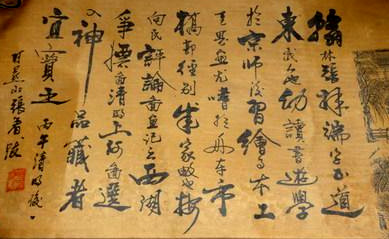 翰林張擇端字正道
東武人也幼讀書遊學
於京師後習繪事本工
其界畫尤嗜於舟車市
橋郭徑別成家數也按
向氏評論圖畫記云西湖
爭標圖清明上河圖選
入神品藏者
宜寶之 丙午清明後一
日燕山張著跋